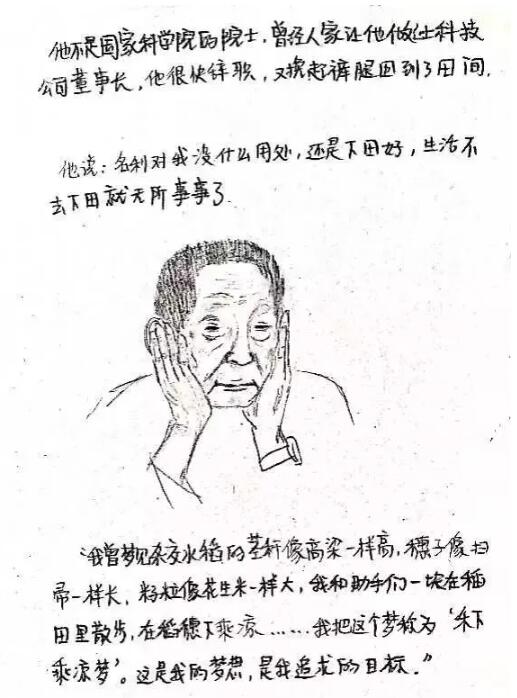 他不是国家科学院的院士，曾经人家让他做过科技
公司董事长，他很快辞职，又挽起裤腿回到了田间。
他说：名利对我没什么用处，还是下田好，生活不
去下田就无所事事了.
“我曾梦见杂交水稻的茎秆像高梁一样高，穗子像扫
帚一样长，籽粒像花生米一样大，我和助手们一块在稻
田里散步，在稻穗下乘凉……我把这个梦称为‘禾下
乘凉梦’。这是我的梦想，是我追求的目标.”